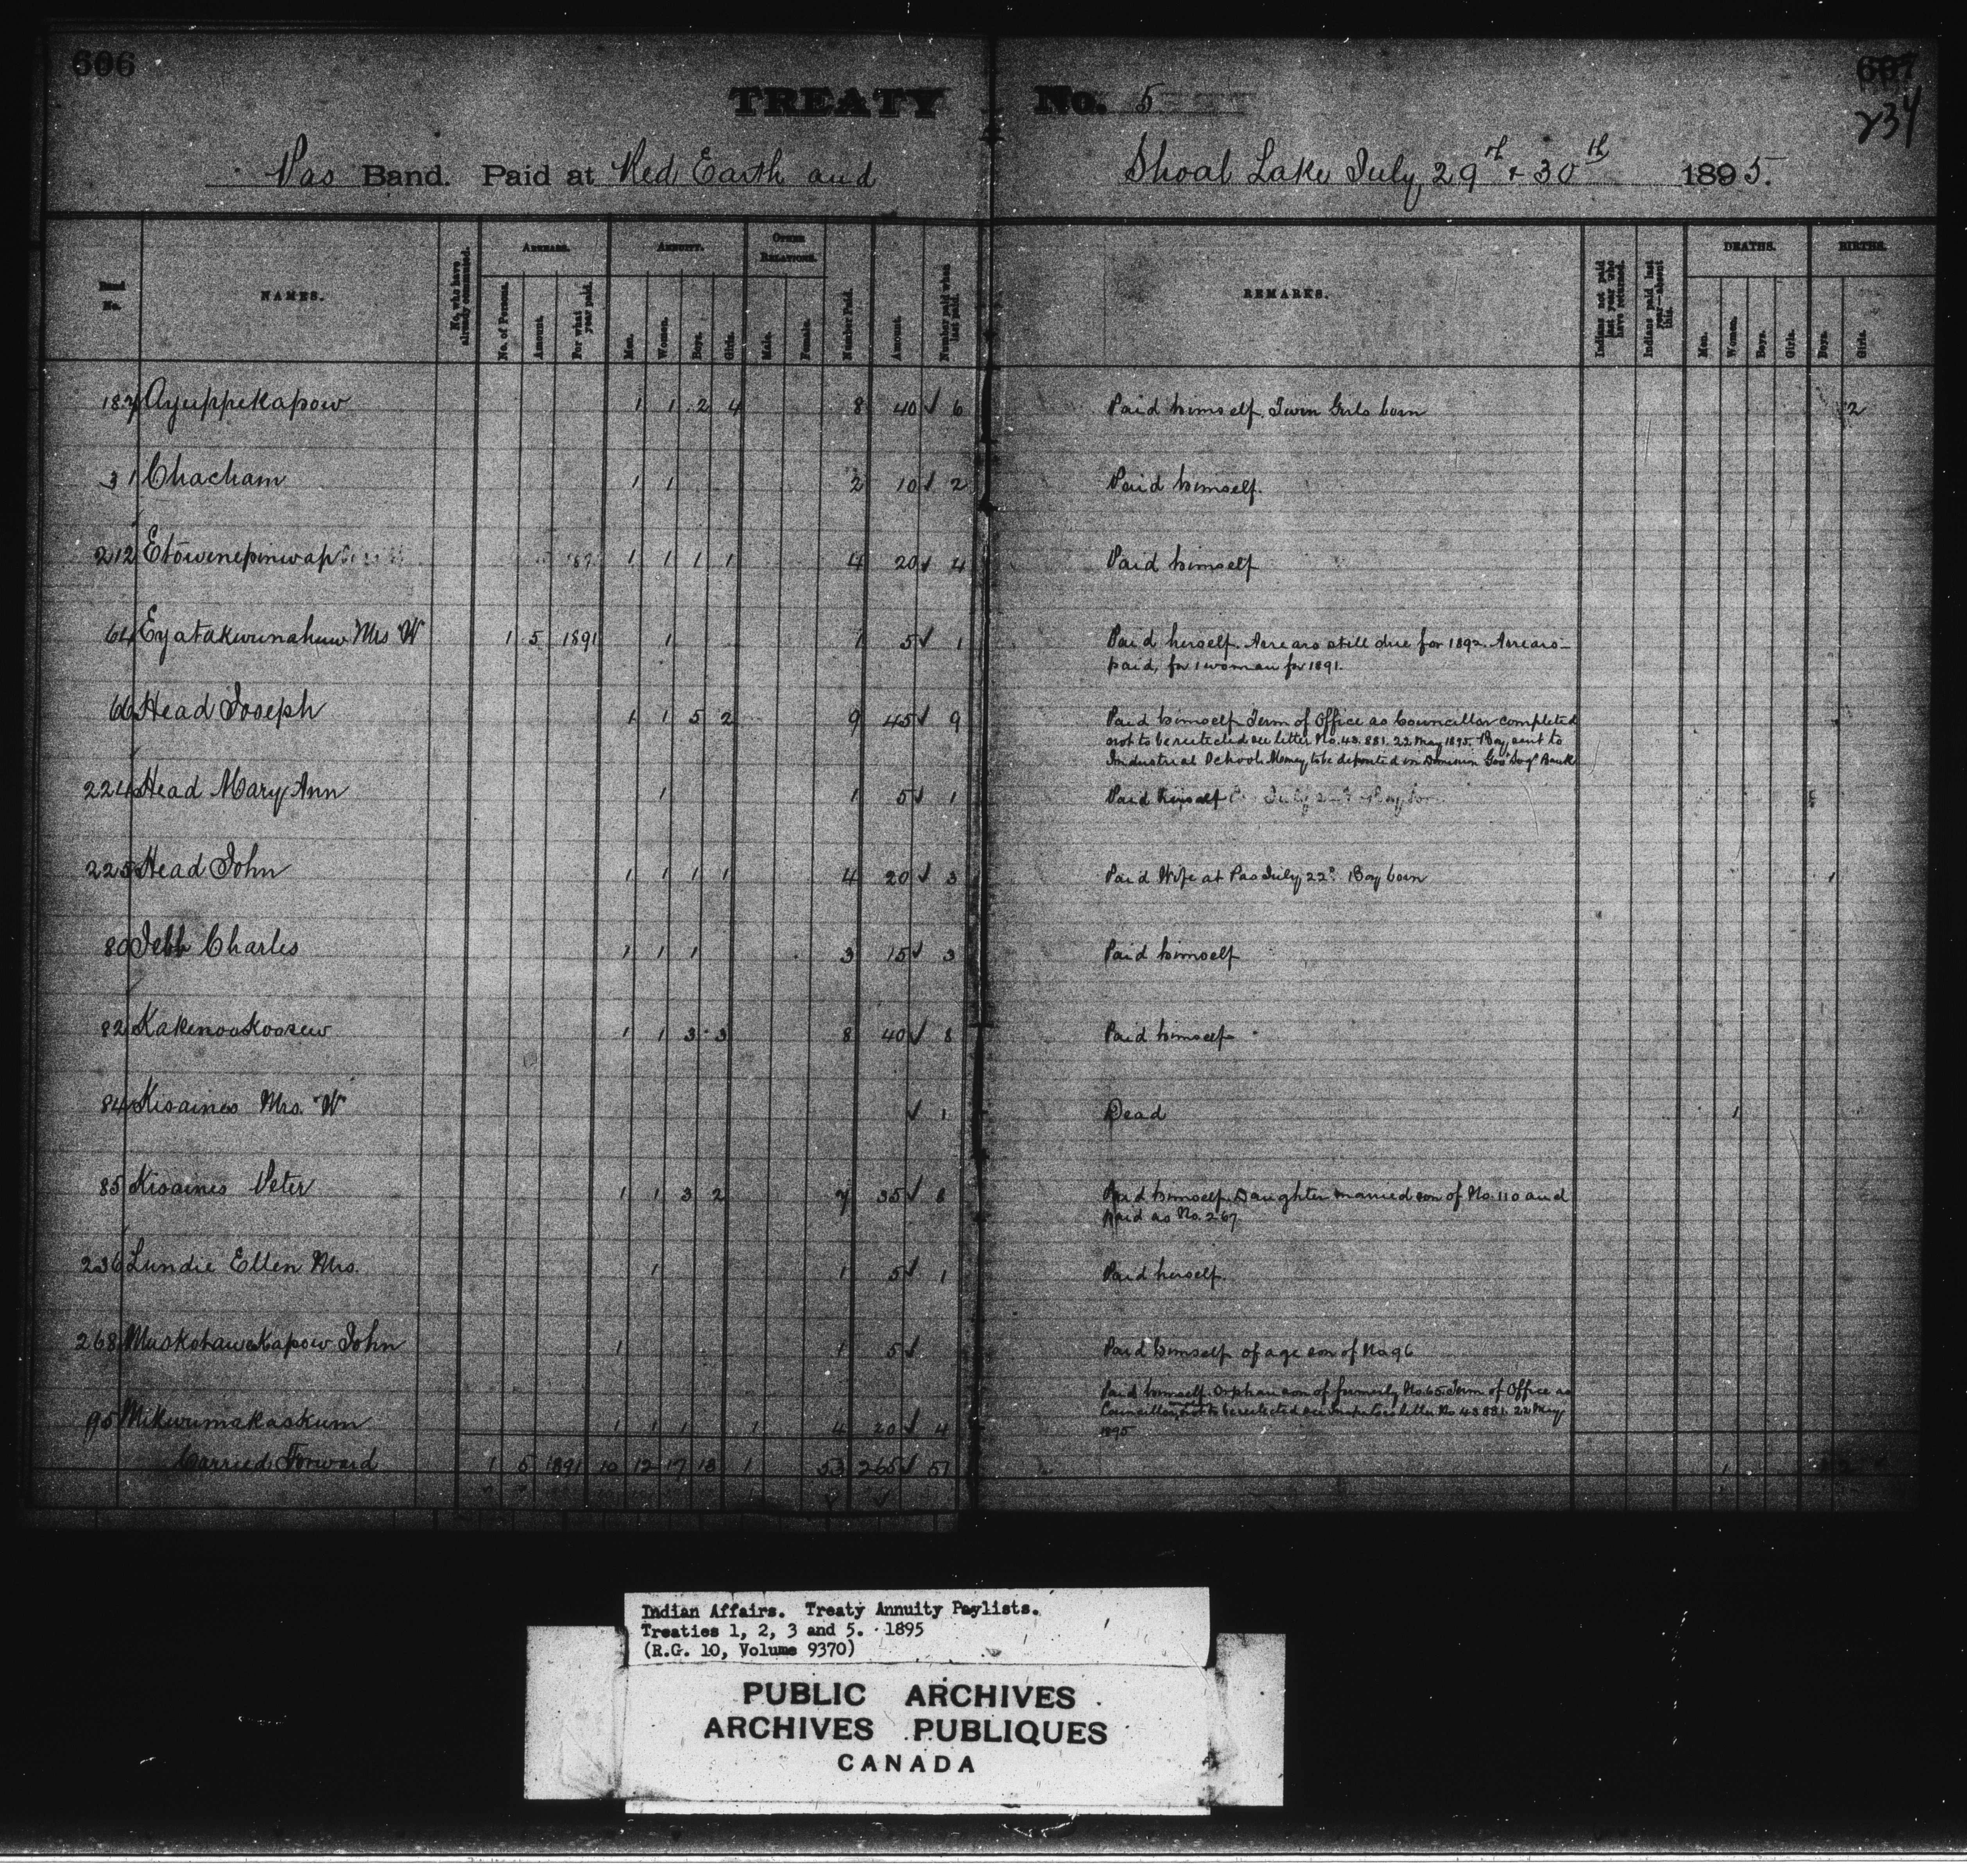 606
607
234
TREATY No. 5
Pas Band. Paid at Red Earth and Shoal Lake July 29th + 30th 1895.
Band No. NAMES. No. who have already commuted. ARREARS. No. of Persons. Amount. For what year paid. ANNUITY. Men. Women. Boys. Girls. OTHER RELATIONS. Male. Female. Number Paid. Amount. Number paid when last paid. REMARKS. Indians not paid last year who have returned. Indians paid last year—absent this. DEATHS. Men. Women. Boys. Girls. BIRTHS. Boys. Girls.
187 Ayuppekapow 1 1 2 4 8 40 ✓ 6 Paid himself. Twin Girls born 2
31 Chacham 1 1 2 10 ✓ 2 Paid himself.
212 Etowenepinwap 1 1 1 1 4 20 ✓ 4 Paid himself
64 Eyatakwunahuw Mrs W 1 5 1891 1 1 5 ✓ 1 Paid herself. Arrears still due for 1892. Arrears
paid, for 1 woman for 1891.
66 Head Joseph 1 1 5 2 9 45 ✓ 9 Paid himself Term of Office as Councillor completed
not to be reelected see letter No. 43.881. 22 May 1895. Boy sent to
Industrial School. Money to be deposited in Dominion Gov Svgs Bank
224 Head Mary Ann 1 1 5 ✓ 1 Paid
225 Head John 1 1 1 1 4 20 ✓ 3 Paid Wife at Pas July 22d. Boy born 1
80 Jebb Charles 1 1 1 3 15 ✓ 3 Paid himself
82 Kakenooskoosew 1 1 3 3 8 40 ✓ 8 Paid himself
84 Kisaines Mrs. W ✓ 1 Dead 1
85 Kisaines Peter 1 1 3 2 7 35 ✓ 8 Paid himself. Daughter married son of No. 110 and
paid as No. 267
236 Lundie Ellen Mrs. 1 1 5 ✓ 1 Paid herself.
268 Muskotawekapow John 1 1 5 ✓ Paid himself of age son of No 96
95 Mikwumakaskum 1 1 1 1 4 20 ✓ 4 Paid himself. Orphan son of formerly No. 65. Term of Office as
Councillor, not to be reelected see Inspectors letter No 43881. 22 May
1895
Carried Forward 1 5 1891 10 12 17 13 1 53 265 ✓ 51 1 1 2
Indian Affairs. Treaty Annuity Paylists.
Treaties 1, 2, 3 and 5. 1895
(R.G. 10, Volume 9370)
PUBLIC ARCHIVES
ARCHIVES PUBLIQUES
CANADA